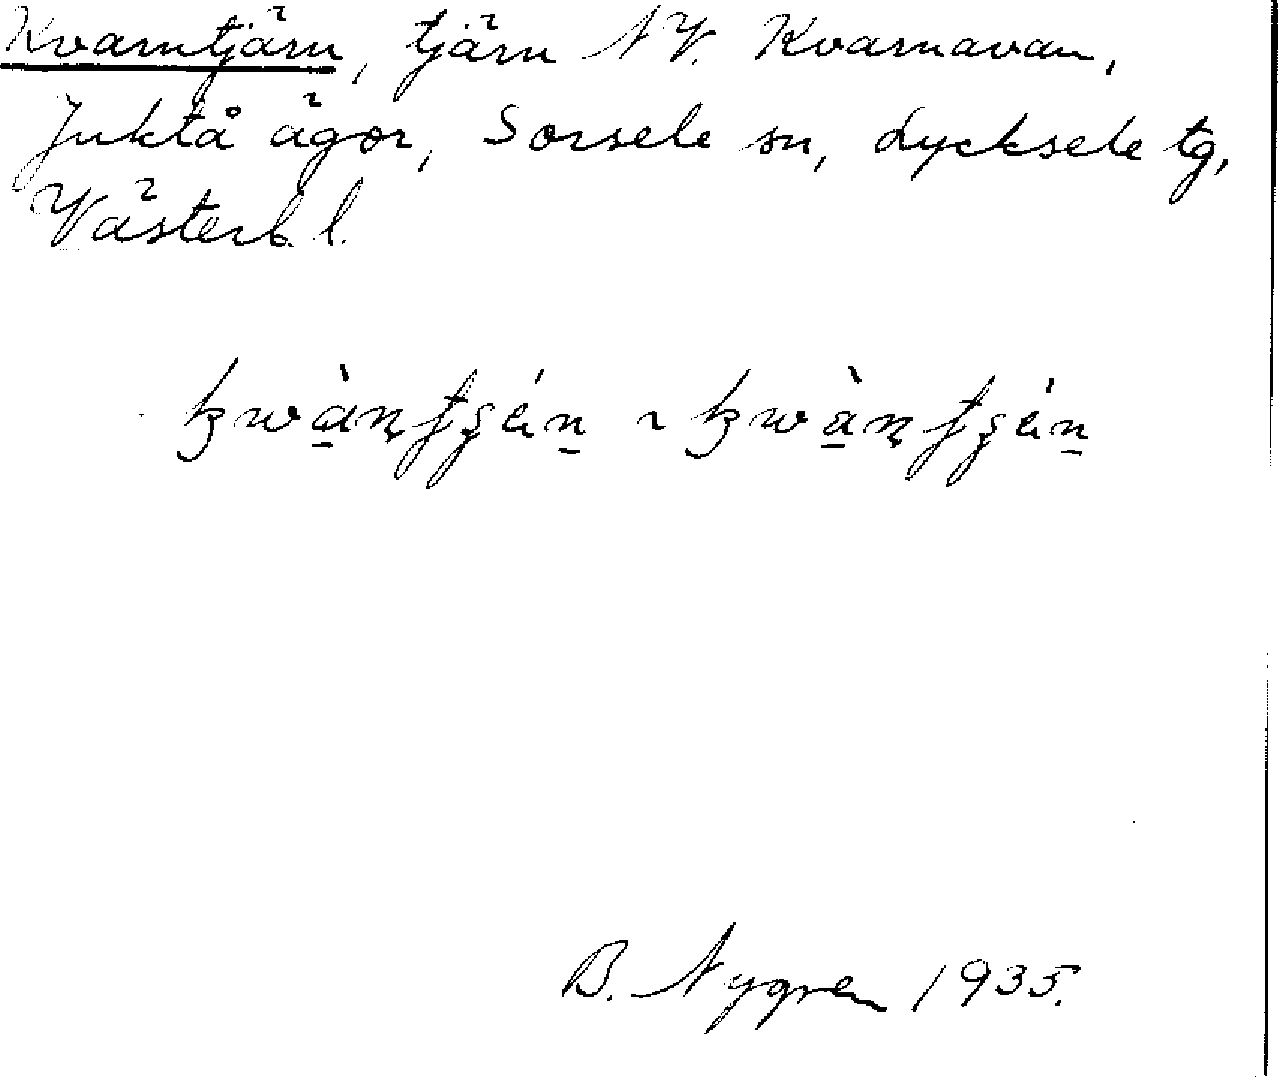 Kvarntjärn, tjärn NV. Kvarnavan,
Juktå ägor, Sorsele sn, Lycksele tg,
Västerb. l.
B. Nygren 1935.